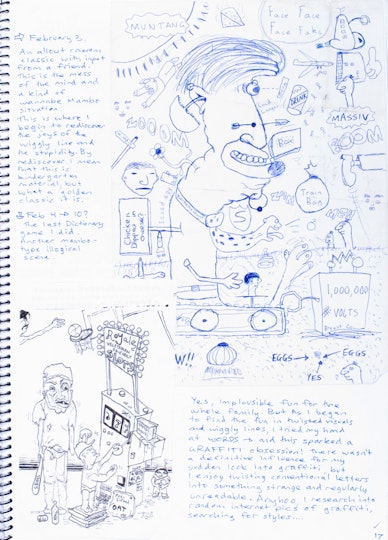 February 3.
An allout random
classic with input
from a friend.
This is the mess
of the mind and
a kind of
wannabe Mambo
situation.
This is where I
begin to rediscover
the joys of the
wiggly line and
he stupidity. By
rediscover I mean
that this is
kindergarten
material but
what a golden
classic it is.
Feb 4 → 10?
The last Dictionary
game I did.
Another mambo-
type illogical
scene.
MUNTANG
Face Face
Face Fake
DRINK
MASSIV
ZOOOM
BOOM
Box
Train
Bog
S
Chicken
Dipped in
1,000,000
VOLTS
W!!
EGGS
EGGS
YES
Royale
OAT
Yes, implausible fun for the
whole family. But As I began
to find the fun in twisted visuals
and wiggly lines, I tried my hand
at WORDS and this sparked a
GRAFFITI obsession! There wasn't
a definative influence for my
sudden look into graffiti, but
I enjoy twisting conventional letters
into something strange and regularly
unreadable. Anyhoo, I research into
random internet pics of graffiti,
searching for styles...